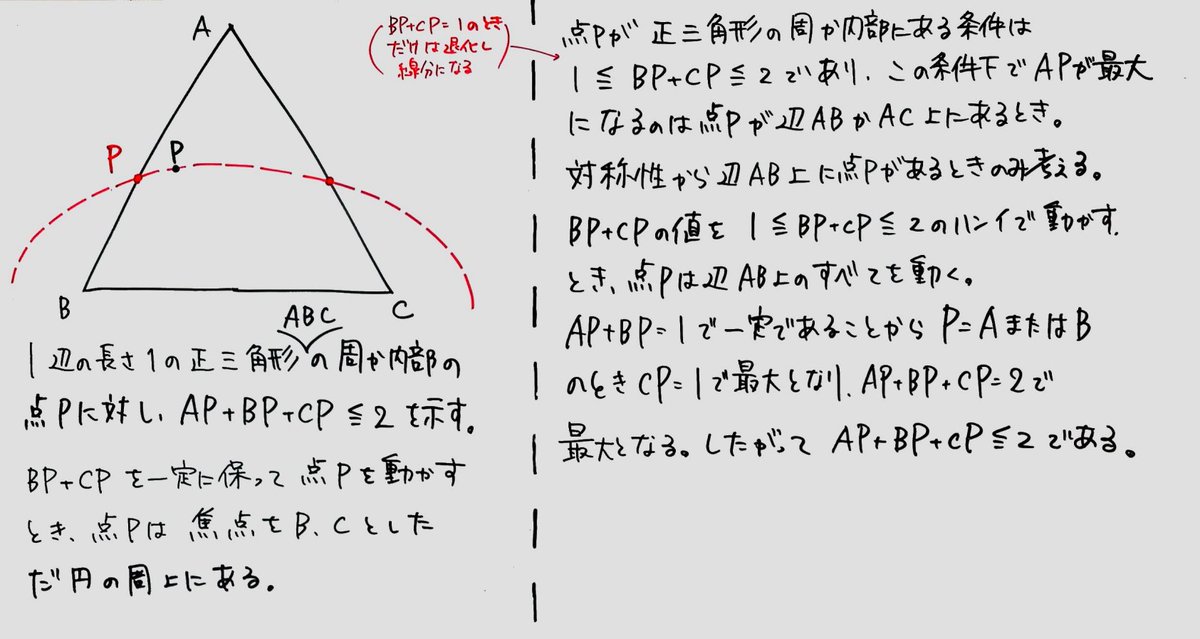 A
P
P
B
C
(BP+CP=1のとき
だけは退化し
線分になる)
ABC
1辺の長さ1の正三角形の周か内部の
点Pに対し、AP+BP+CP≦2を示す。
BP+CPを一定に保って点Pを動かす
とき、点Pは焦点をB、Cとした
だ円の周上にある。
点Pが正三角形の周か内部にある条件は
1≦BP+CP≦2であり、この条件下でAPが最大
になるのは点Pが辺ABかAC上にあるとき。
対称性から辺AB上に点Pがあるときのみ考える。
BP+CPの値を1≦BP+CP≦2のハンイで動かす
とき、点Pは辺AB上のすべてを動く。
AP+BP=1で一定であることからP=AまたはB
のときCP=1で最大となり、AP+BP+CP=2で
最大となる。したがってAP+BP+CP≦2である。